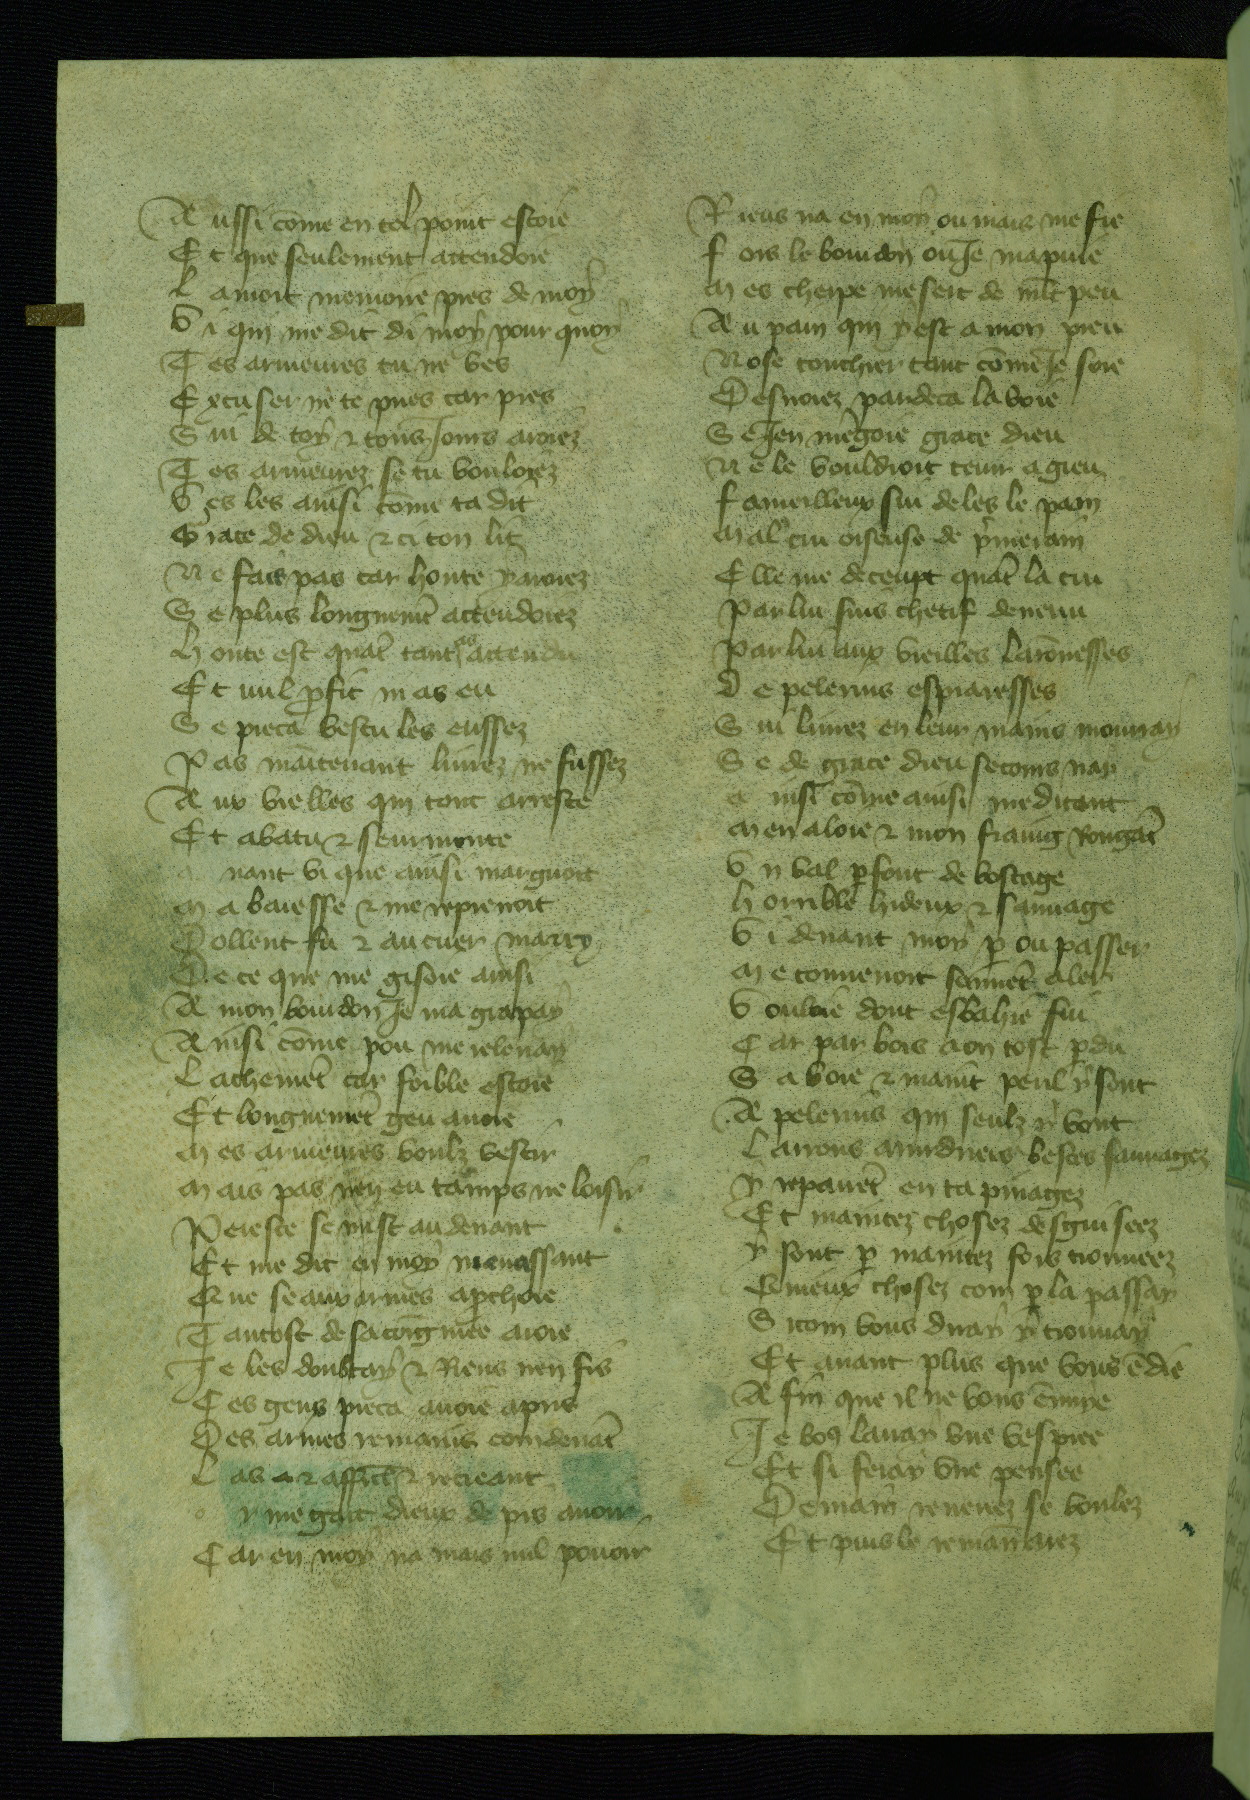 A ussi cōme en tel point estoie
E t que seulement attendoie
L a mort memoire pres de moy
V i qui me dit di moy pour quoy
T es armeures tu ne ves
E xcuser ne te pues car pres
S ui de toy ⁊ tousiours auoiez
T es armeurez se tu vouloiez
V es les ainsi cōme ta dit
G race de dieu ⁊ ci ton lit
N e fais pas car honte y auoiez
S e plus longuemēt attendoiez
H onte est quāt tant as attendu
E t nul ꝓfit ni as eu
S e pieca vestu les eussez
P as maītenant liurez ne fussez
A ux vielles qui tont arreste
E t abatu ⁊ seurmonte
Q uant vi que ainsi marguoit
M a baiesse ⁊ me reprenoit
D ollent fu ⁊ au cuer marry
D e ce que me gisoie ainsi
A mon bourdon Ie ma grapay
A insi cōme pou me releuay
L achemēt car foible estoie
E t longuemēt geu auoie
M es armeures voulz vestir
M ais pas nen eu tamps ne loisir
P eresce se mist au deuant
E t me dit en moy menassant
Q ue se aux armes aꝑchoie
T antost de sa coignie auroie
I e les doubtay ⁊ Riens nen fis
C es gens pieca auoie apris
D es armes remains com deuāt
L as ⁊ afflict ⁊ recreant
O r me gart dieux de pis auoir
C ar en moy na mais nul pouoir
R iens na en moy ou mais me fie
F ors le bourdon ou Ie mapuie
M es cherpe me sert de mlt peu
A u pain qui y est a mon preu
N ose touchier tant cōme Ie soie
D esuoiez pardeca la voie
S e Ien mēgoie grace dieu
N e le vouldroit tenir a gieu
F ameilleux sui de les le pain
M al crui oiseuse de pͥmerain
E lle me deceupt quāt la crui
P ar lui suis chetif deuenu
P ar lui aux vieilles larōnesses
D e pelerins espiaresses
S ui liurez en leur mains mourray
S e de grace dieu secours nay
A insi cōme ainsi me ditant
M en aloie ⁊ mon frain Rongāt
V n val ꝑfont de boscage
H orrible hideux ⁊ sauuage
V i deuant moy ꝑ ou passer
M e conuenoit saumēt aler
V ouloie dont esbahie fui
C ar par bois a on tost ꝑdu
S a voie ⁊ maint peril y sont
A pelerins qui seulz y vont
L arrons murdriers bestes sauuagez
Y repairēt en tapinagez
E t maintez chosez desguiseez
Y sont ꝑ maintez fois trouueez
Q uieux chosez com ꝑ la passay
S icom vous diray y trouuay
E t auant plus que vous ē die
A fin que il ne vous ēnuie
I e vo9 lairay vne vespree
E t si feray vne pensee
D emain reuenez se voulez
E t puis le remanant arez